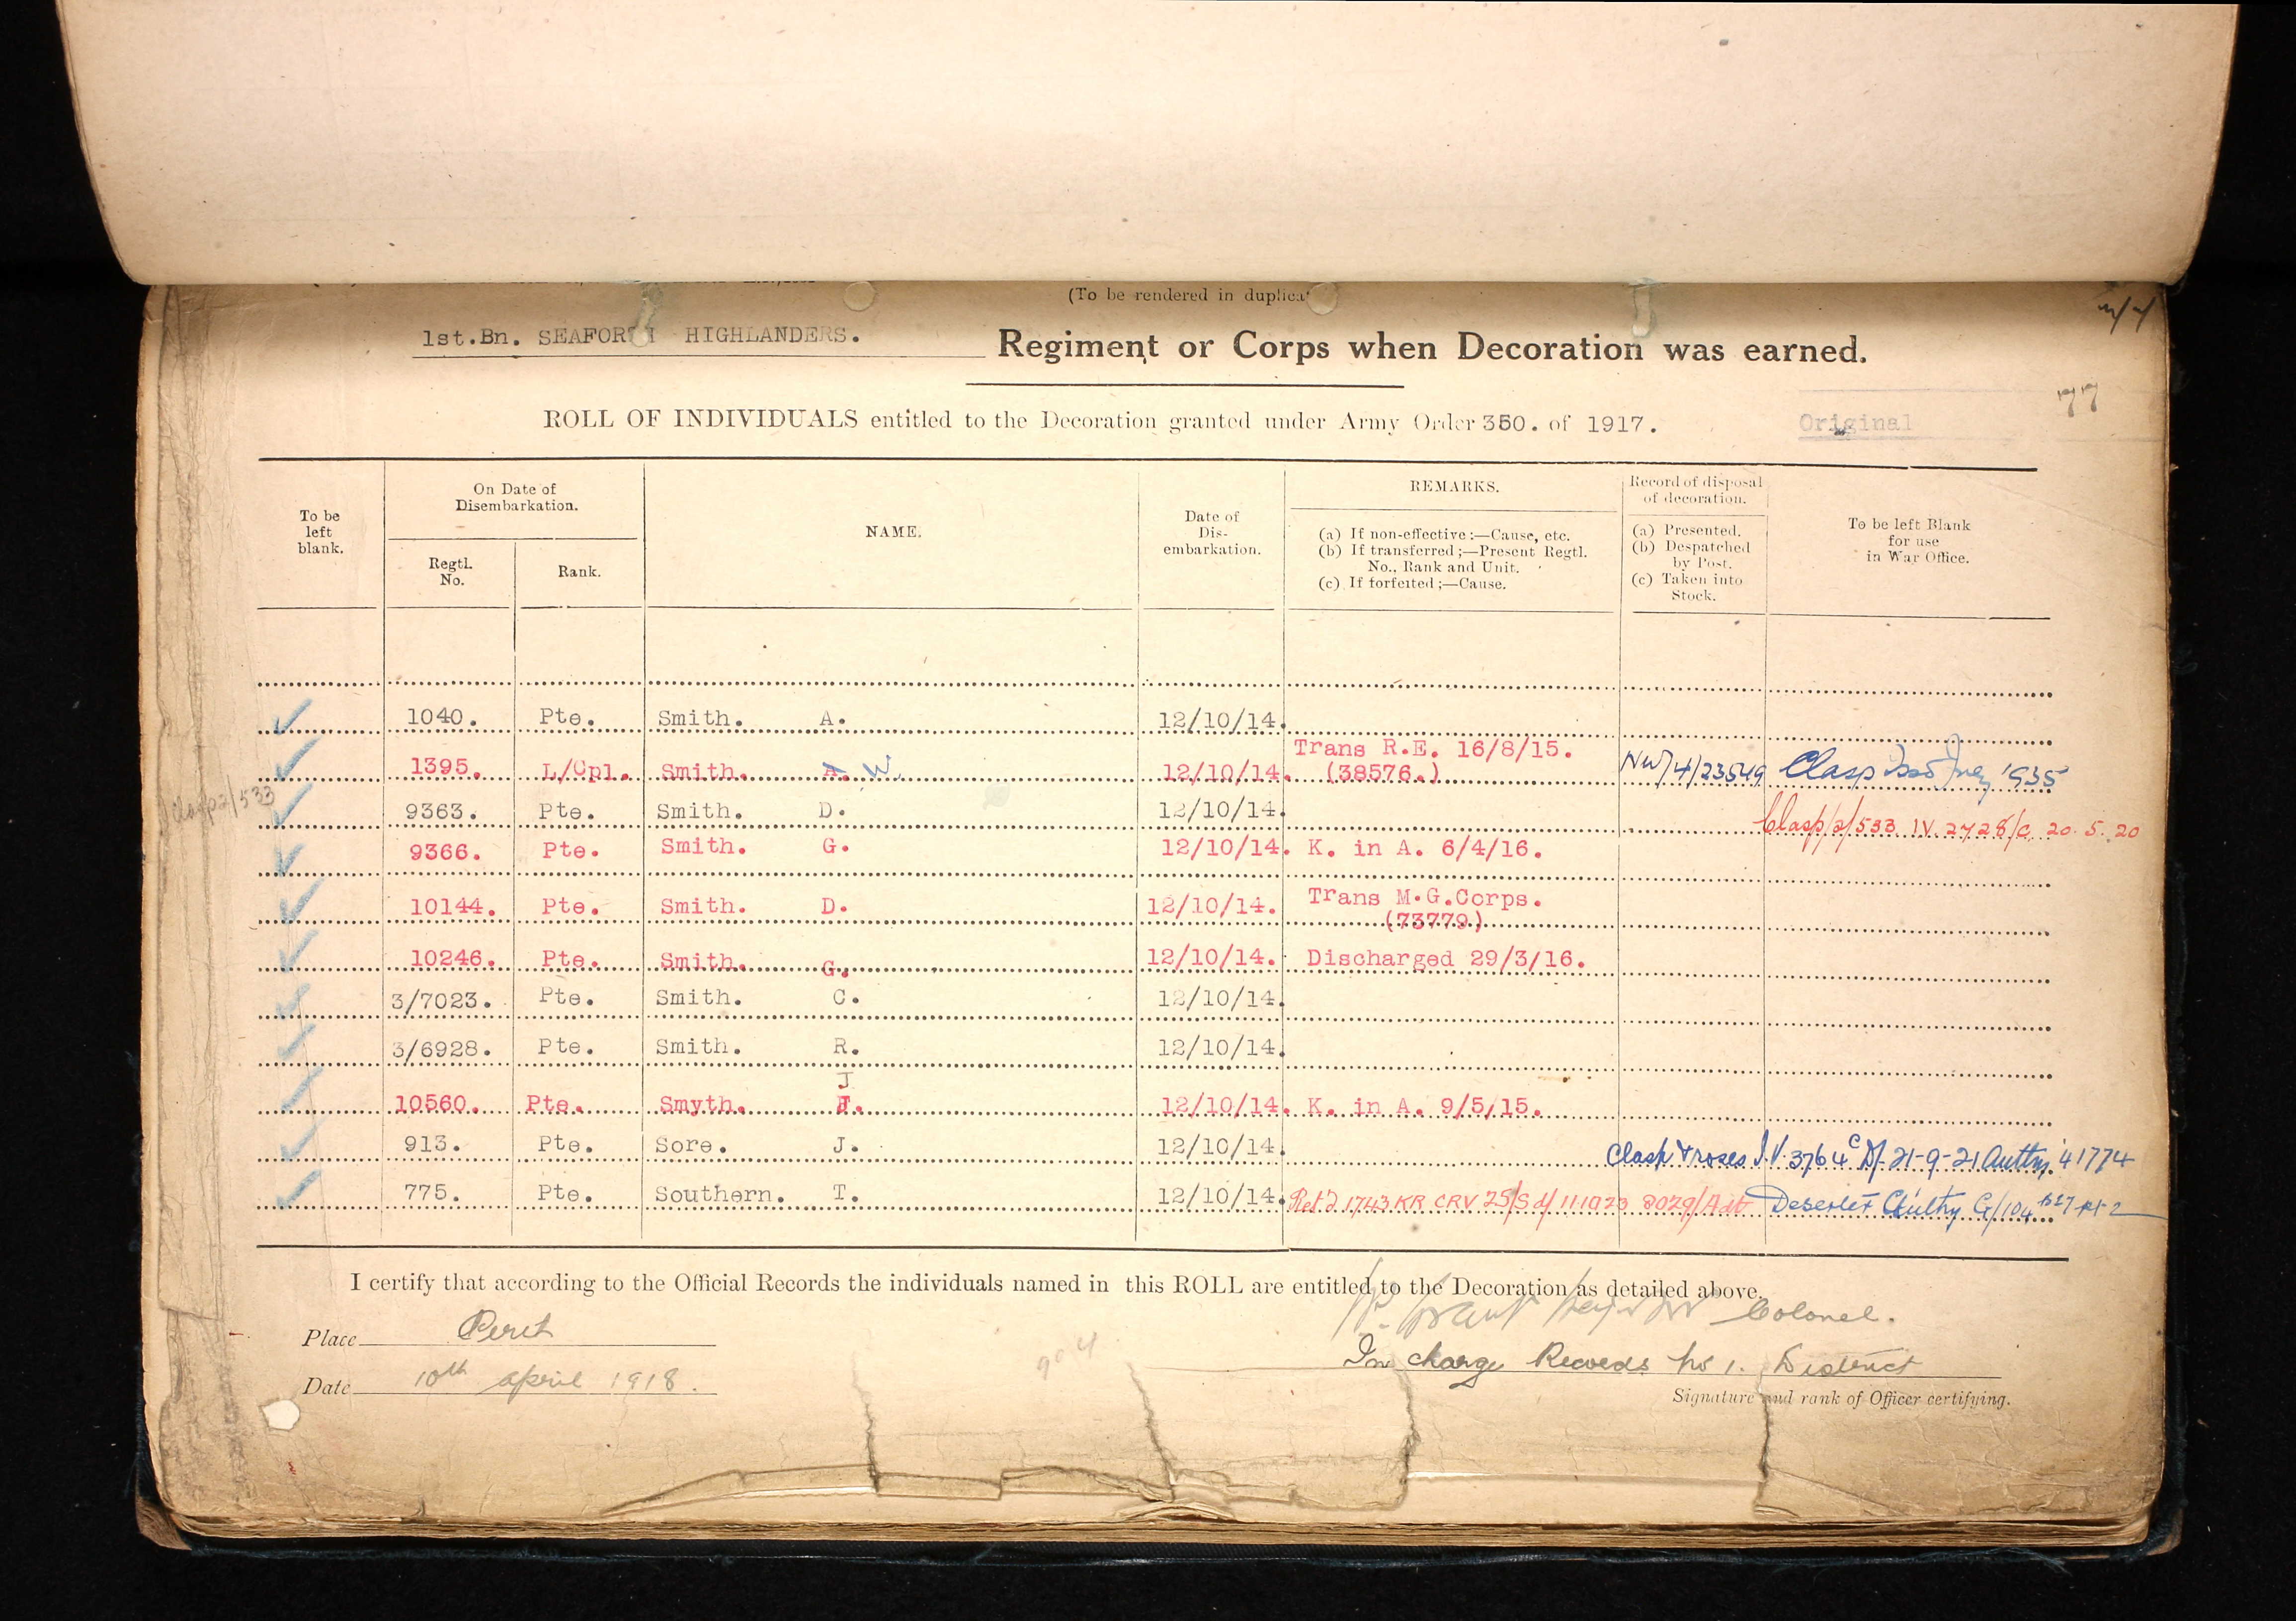 (To be rendered in duplica
1st.Bn. SEAFORTH HIGHLANDERS. Regiment or Corps when Decoration was earned.
77
ROLL OF INDIVIDUALS entitled to the Decoration granted under Army Order 350. of 1917. Original
To be left blank.
On Date of Disembarkation.
Regtl. No.
Rank.
NAME.
Date of Dis-embarkation.
REMARKS.
(a) If non-effective:—Cause, etc.
(b) If transferred;—Present Regtl. No., Rank and Unit.
(c) If forfeited;—Cause.
Record of disposal of decoration.
(a) Presented.
(b) Despatched by Post.
(c) Taken into Stock.
To be left Blank for use in War Office.
1040. Pte. Smith. A. 12/10/14.
1395. L/Cpl. Smith. A. W. 12/10/14. Trans R.E. 16/8/15. (38576.) NW/4/23549 Clasp 1935
Clasp 2/533 9363. Pte. Smith. D. 12/10/14. Clasp/2/533 IV. 2728/C. 20.5.20
9366. Pte. Smith. G. 12/10/14. K. in A. 6/4/16.
10144. Pte. Smith. D. 12/10/14. Trans M.G.Corps. (73779)
10246. Pte. Smith. G. 12/10/14. Discharged 29/3/16.
3/7023. Pte. Smith. C. 12/10/14.
3/6928. Pte. Smith. R. 12/10/14.
10560. Pte. Smyth. J. 12/10/14. K. in A. 9/5/15.
913. Pte. Sore. J. 12/10/14. Clasp & roses I.V. 3764 C d/ 21-9-21 Authy. 41774
775. Pte. Southern. T. 12/10/14. Ret'd 1743 KR CRV 25/S d/ 11.10.23 8029/Adt Deserter Authy G/104
I certify that according to the Official Records the individuals named in this ROLL are entitled to the Decoration as detailed above.
Place Perth
Grant Major for Colonel.
Date 10th April 1918.
904
In charge Records No 1. District
Signature and rank of Officer certifying.